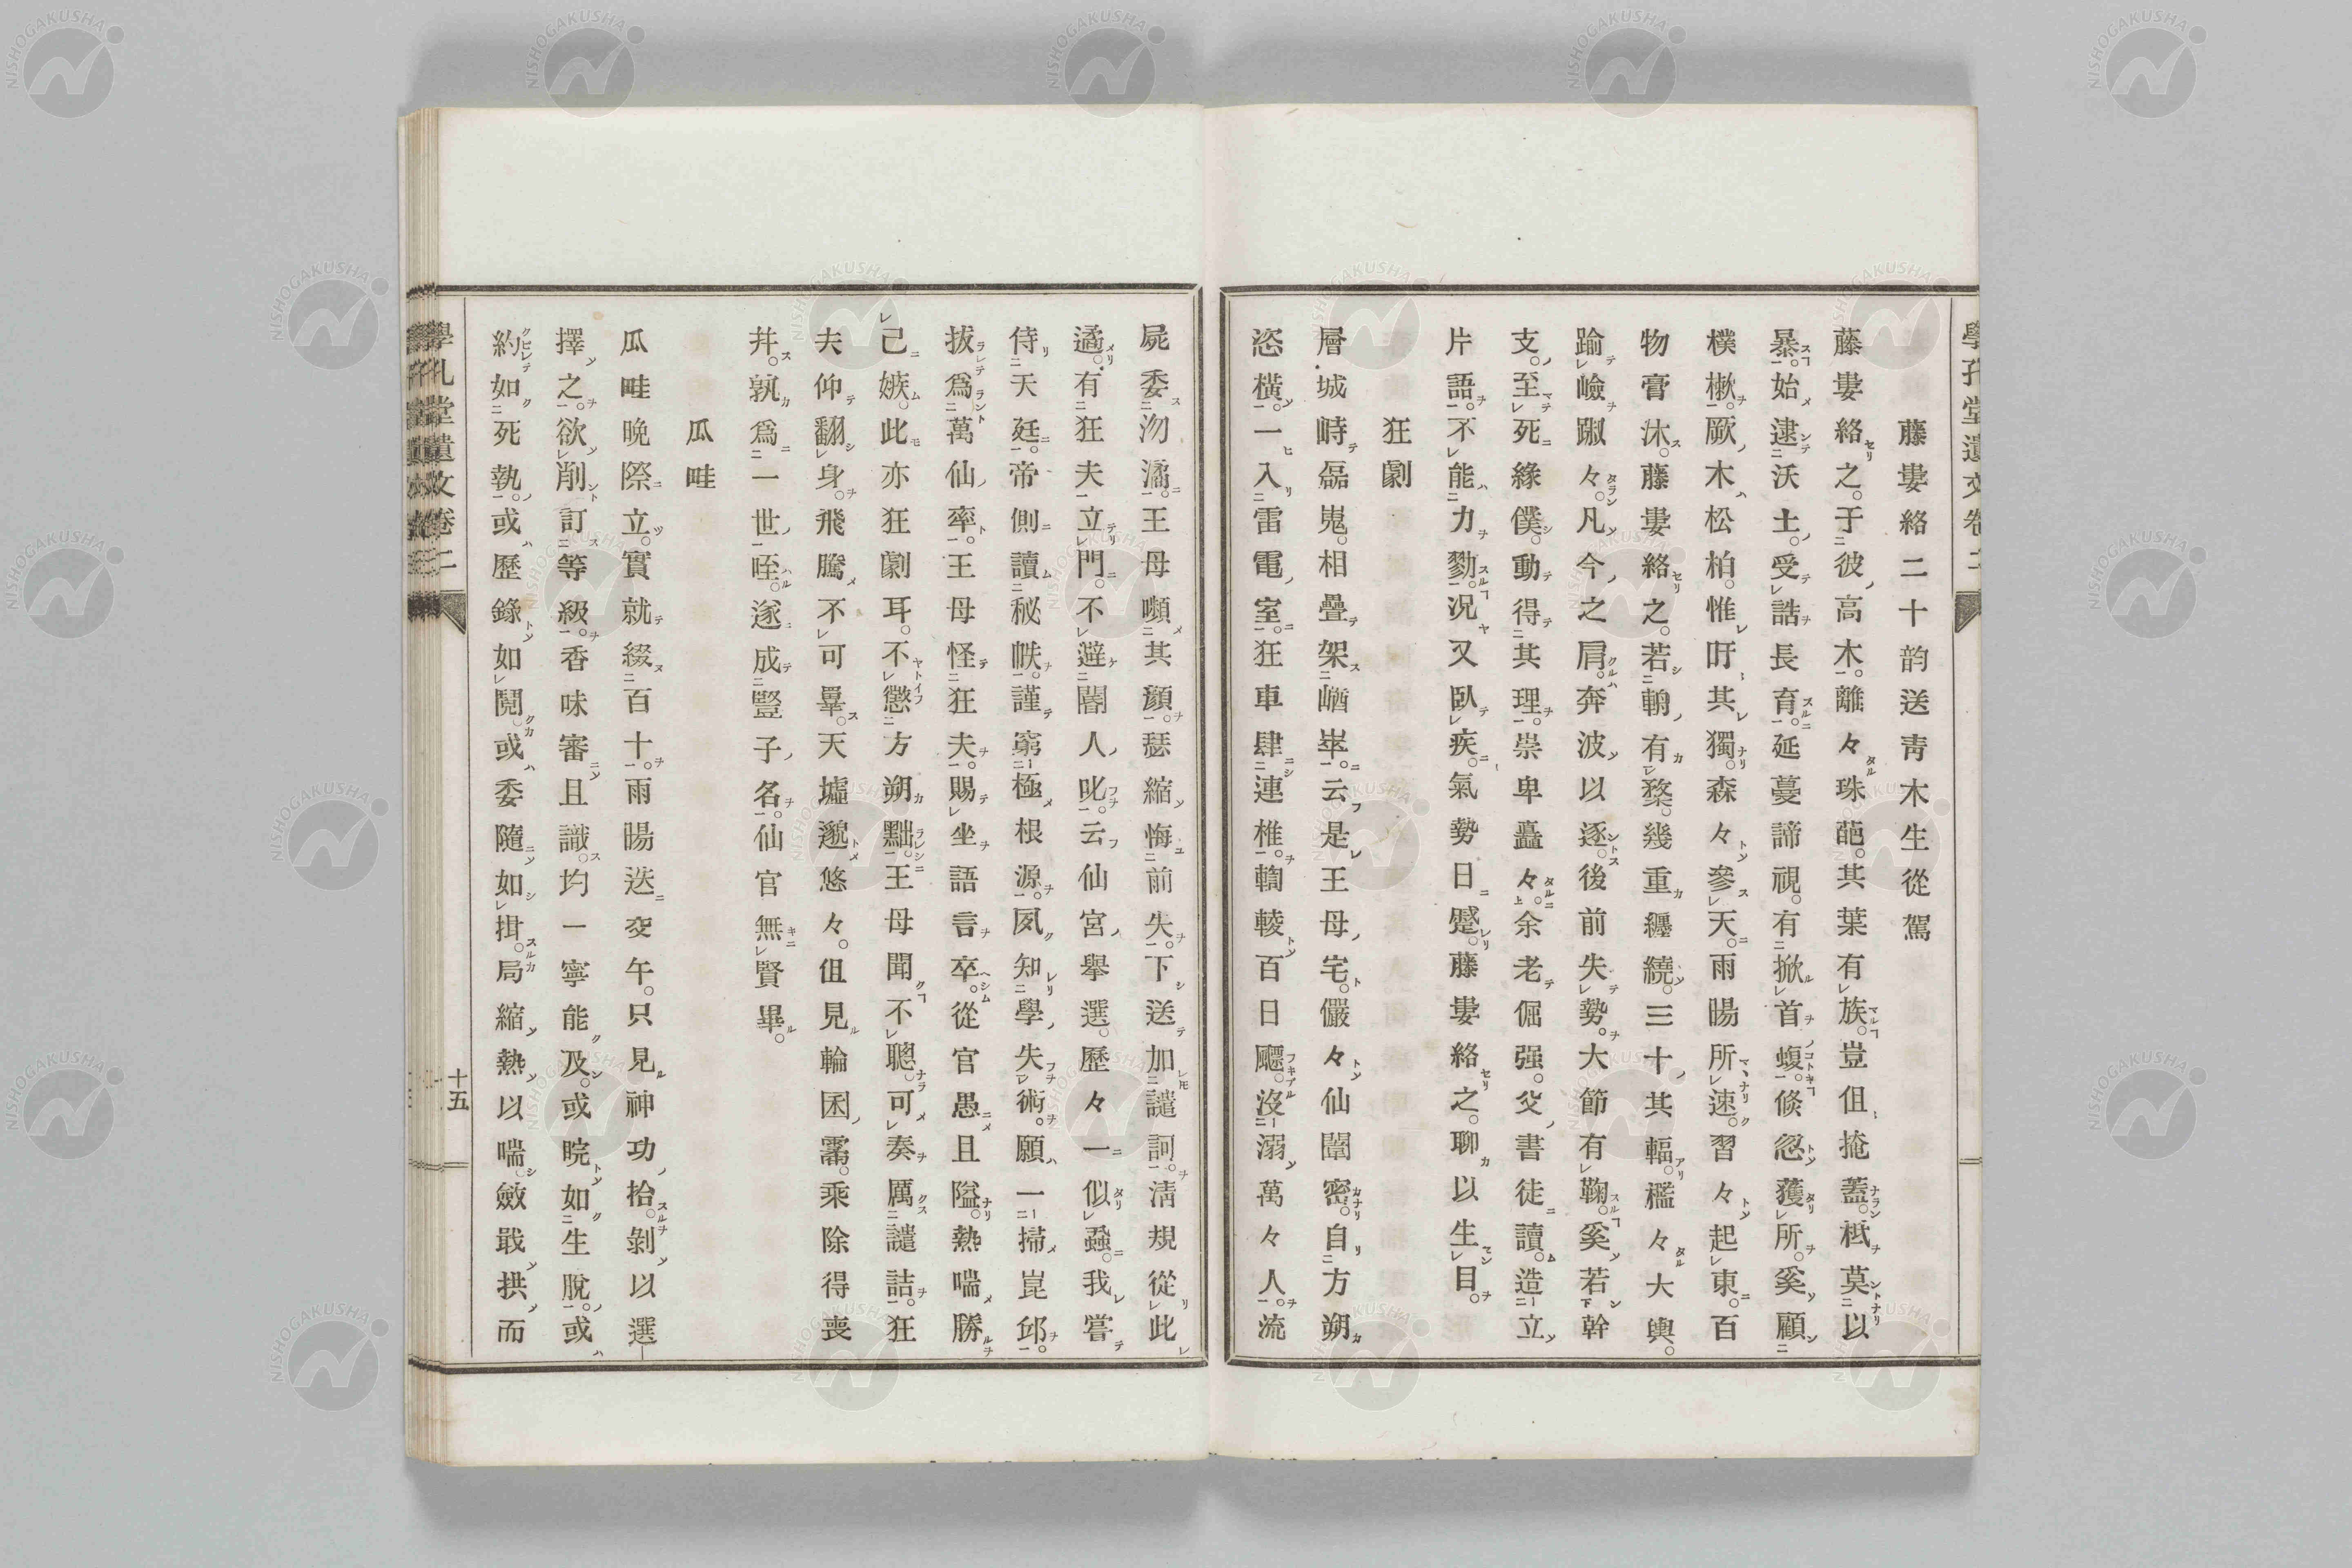 學孔堂遺文卷二
藤婁絡二十韵送靑木生從駕
藤婁絡之。于彼高木。離々珠葩。其葉有族。豈伹掩蓋。柢莫以
暴。始逮沃土。受誥長育。延蔓諦視。有掀首蝮。倐忽獲所。奚顧
樸樕。厥木松柏。惟吁其獨。森々參天。雨暘所速。習々起東。百
物膏沐。藤婁絡之。若輈有楘。幾重纒繞。三十其輻。檻々大輿。
踰嶮踧々。凡今之肩。奔波以逐。後前失勢。大節有鞠。奚若幹
支。至死緣僕。動得其理。崇卑矗々。余老倔强。父書徒讀。造立
片語。不能力勠。况又臥疾。氣勢日蹙。藤婁絡之。聊以生目。
狂劇
層城峙磊嵬。相疊架崷崒。云是王母宅。儼々仙闈密。自方朔
恣橫。一入雷電室。狂車肆連椎。輷輘百日飅。沒溺萬々人。流
屍委沕潏。王母嚬其顏。瑟縮悔前失。下送加譴訶。淸規從此
遹。有狂夫立門。不避閽人叱。云仙宮擧選。歷々一似蝨。我嘗
侍天廷。帝側讀秘帙。謹窮極根源。夙知學失術。願一掃崑邱。
拔爲萬仙率。王母怪狂夫。賜坐語言卒。從官愚且隘。熱喘勝
己嫉。此亦狂劇耳。不懲方朔黜。王母聞不聰。可奏厲譴詰。狂
夫仰翻身。飛騰不可畢。天墟邈悠々。伹見輪囷霱。乘除得喪
幷。孰爲一世咥。遂成豎子名。仙官無賢畢。
瓜畦
瓜畦晚際立。實就綴百十。雨暘迭交午。只見神功拾。剝以選
擇之。欲削訂等級。香味審且識。均一寧能及。或睆如生脫。或
約如死執。或歷錄如鬩。或委隨如揖。局縮熱以喘。斂戢拱而
十五